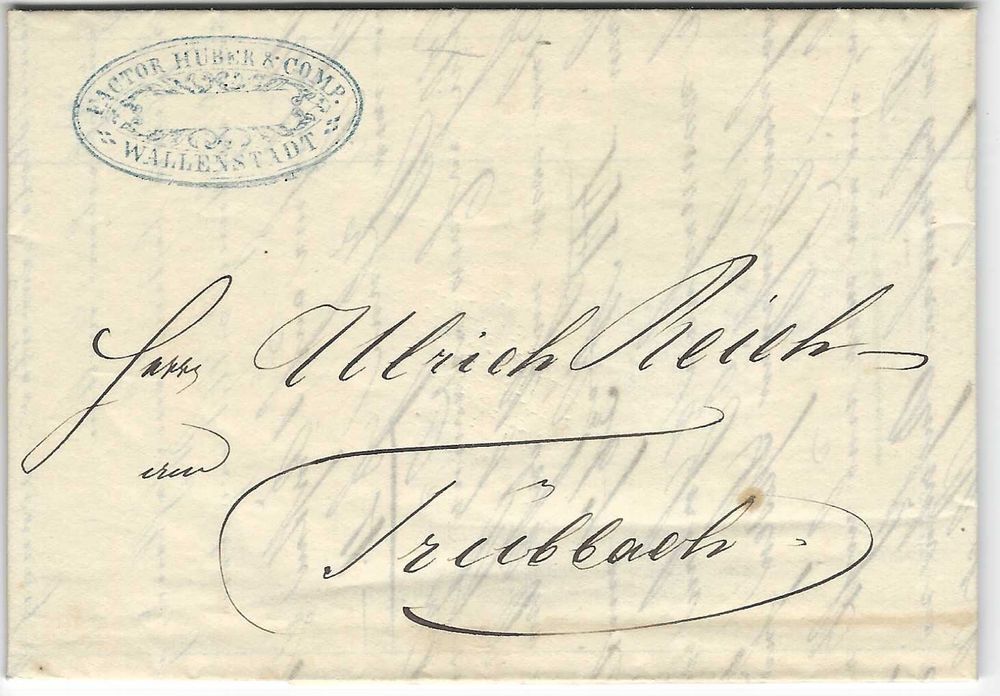 FACTOR HUBER & COMP.
WALLENSTADT
Herrn Ulrich Reich
in
Trübbach